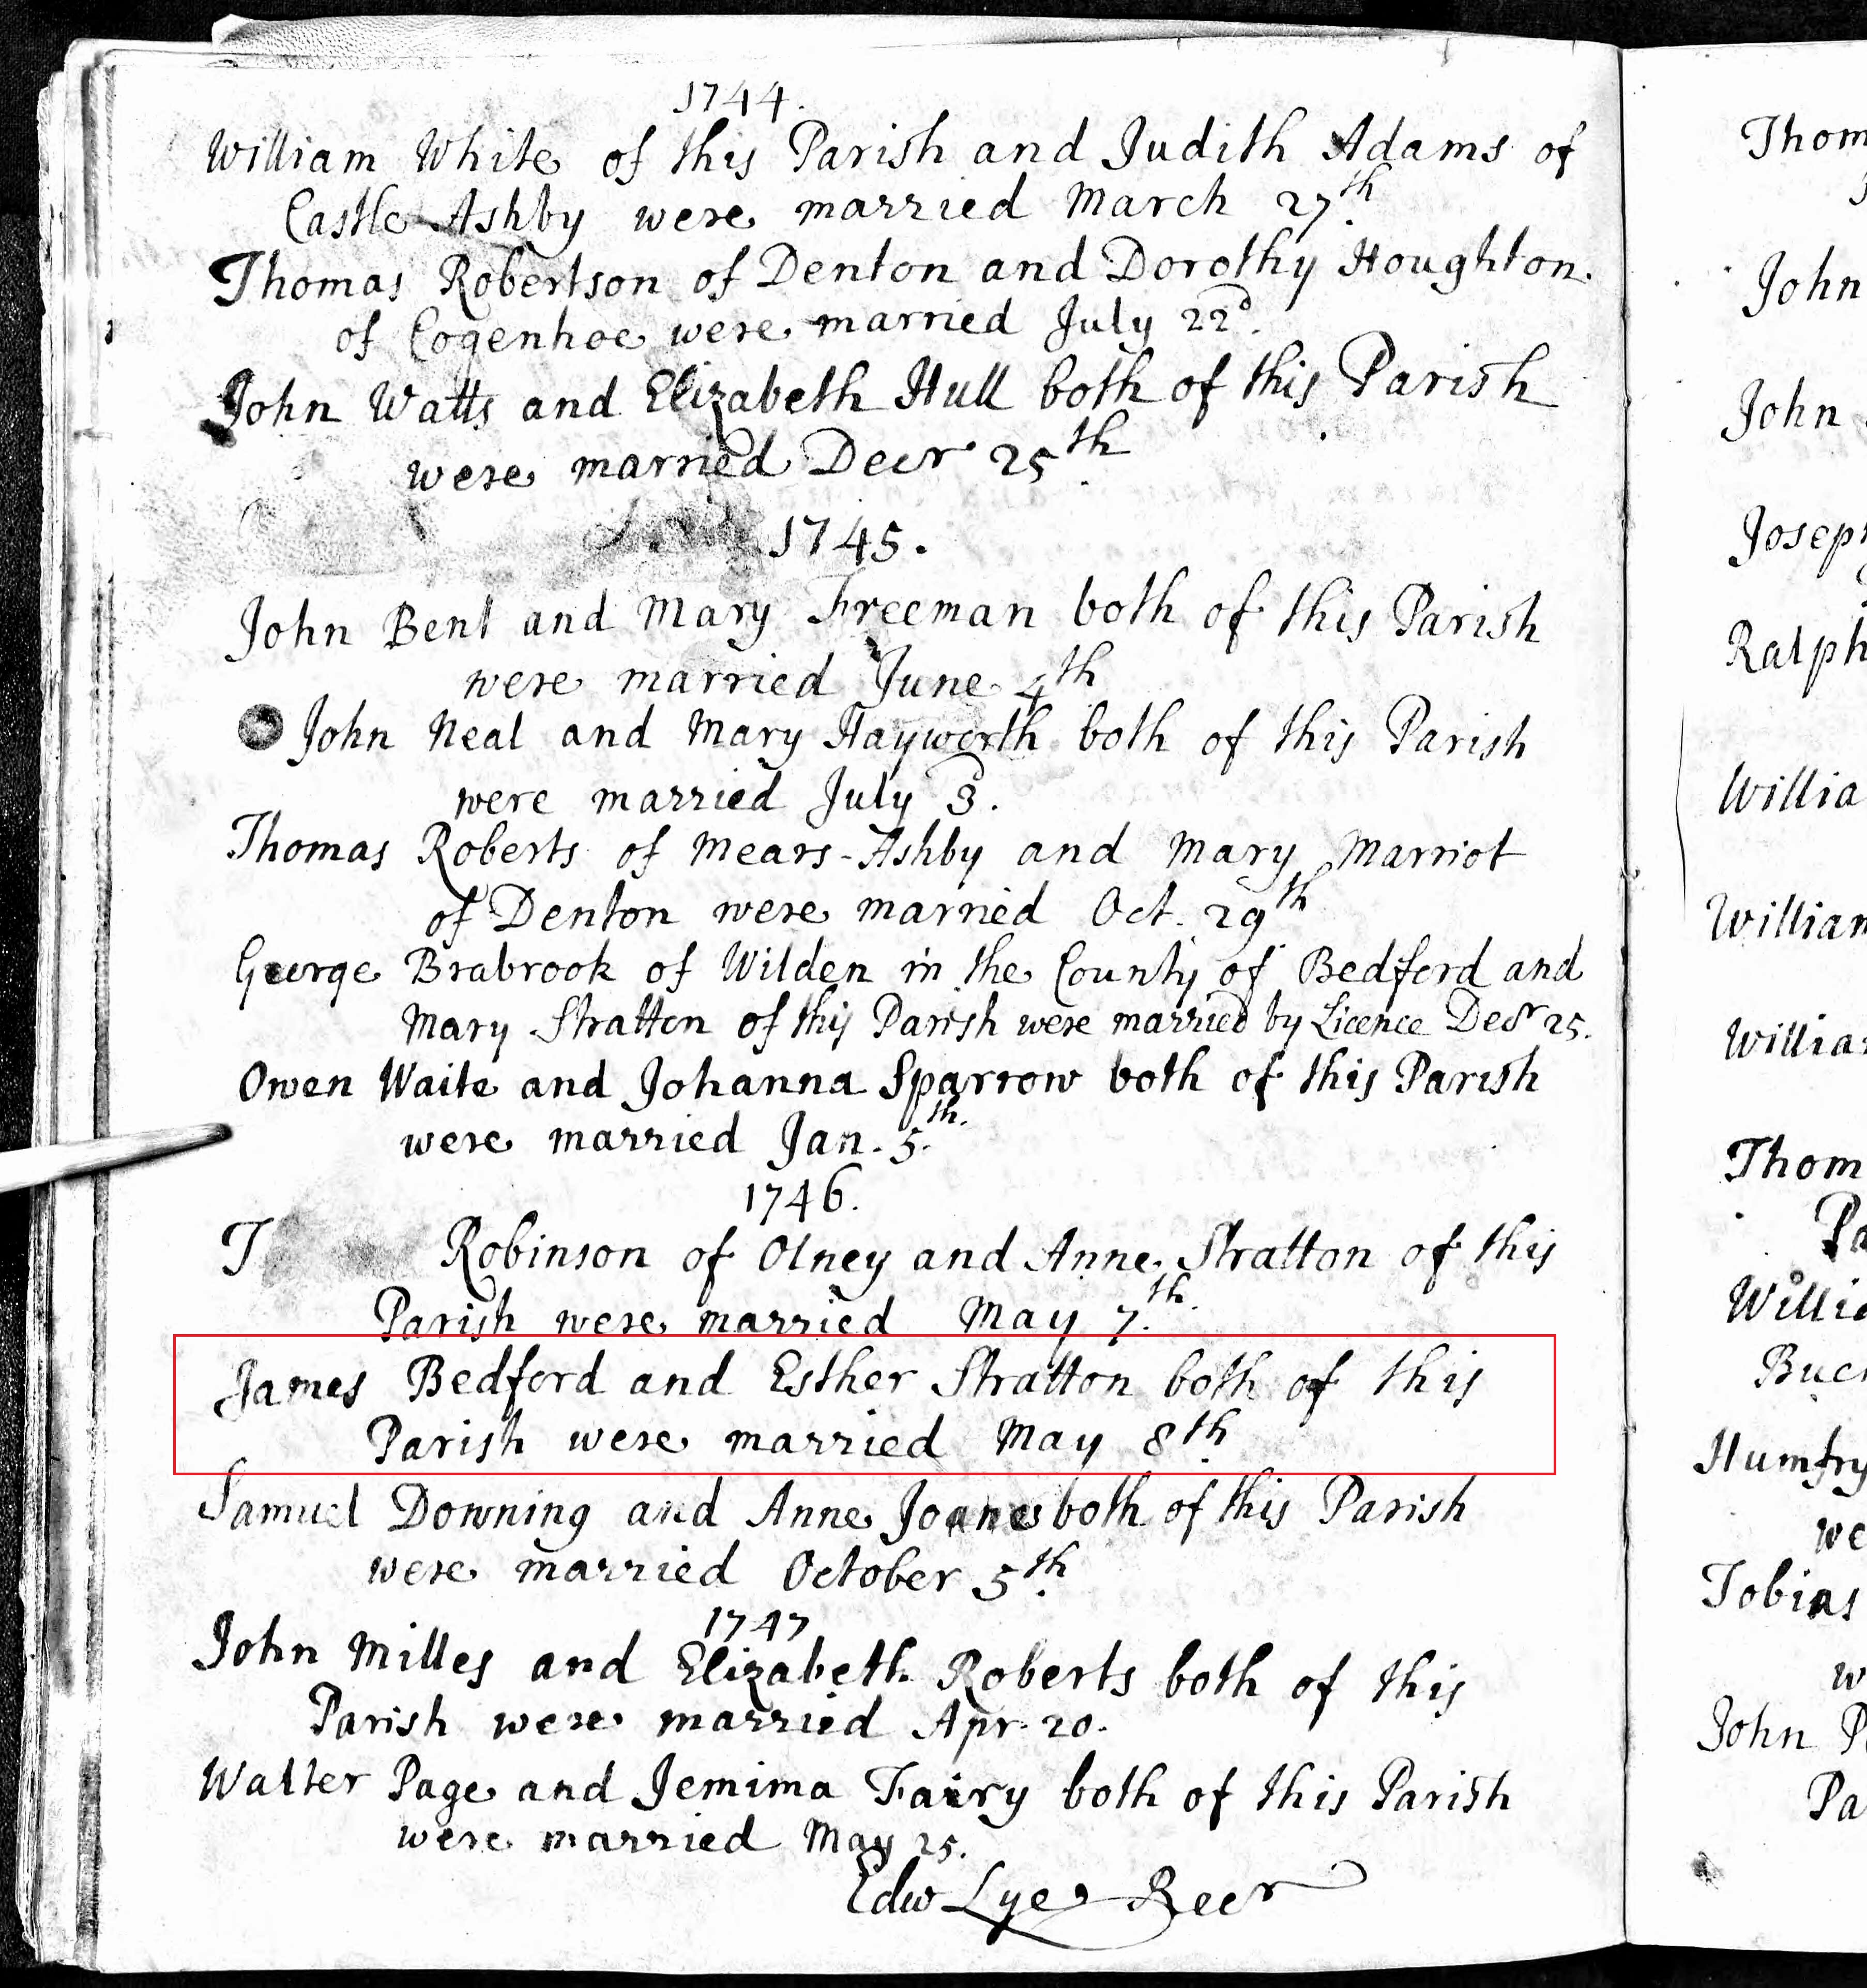 1744.
William White of this Parish and Judith Adams of
Castle-Ashby were married March 27th.
Thomas Robertson of Denton and Dorothy Houghton.
of Cogenhoe were married July 22d.
John Watts and Elizabeth Hull both of this Parish
were married Decr 25th.
1745.
John Bent and Mary Freeman both of this Parish
were married June 4th
John Neal and Mary Hayworth both of this Parish
were married July 3.
Thomas Roberts of Mears-Ashby and Mary Marriot
of Denton were married Oct. 29th
George Brabrook of Wilden in the County of Bedford and
Mary Stratton of this Parish were married by Licence Decr 25.
Owen Waite and Johanna Sparrow both of this Parish
were married Jan. 5th.
1746.
T Robinson of Olney and Anne Stratton of this
Parish were married May 7th.
James Bedford and Esther Stratton both of this
Parish were married May 8th.
Samuel Downing and Anne Joanes both of this Parish
were married October 5th.
1747
John Milles and Elizabeth Roberts both of this
Parish were married Apr. 20.
Walter Page and Jemima Fairy both of this Parish
were married May 25.
Edw Lye Recr
Thom
John
John
Joseph
Ralph
Willia
William
Willia
Thom
Pa
Willia
Buc
Humfry
we
Tobias
w
John P
Pa